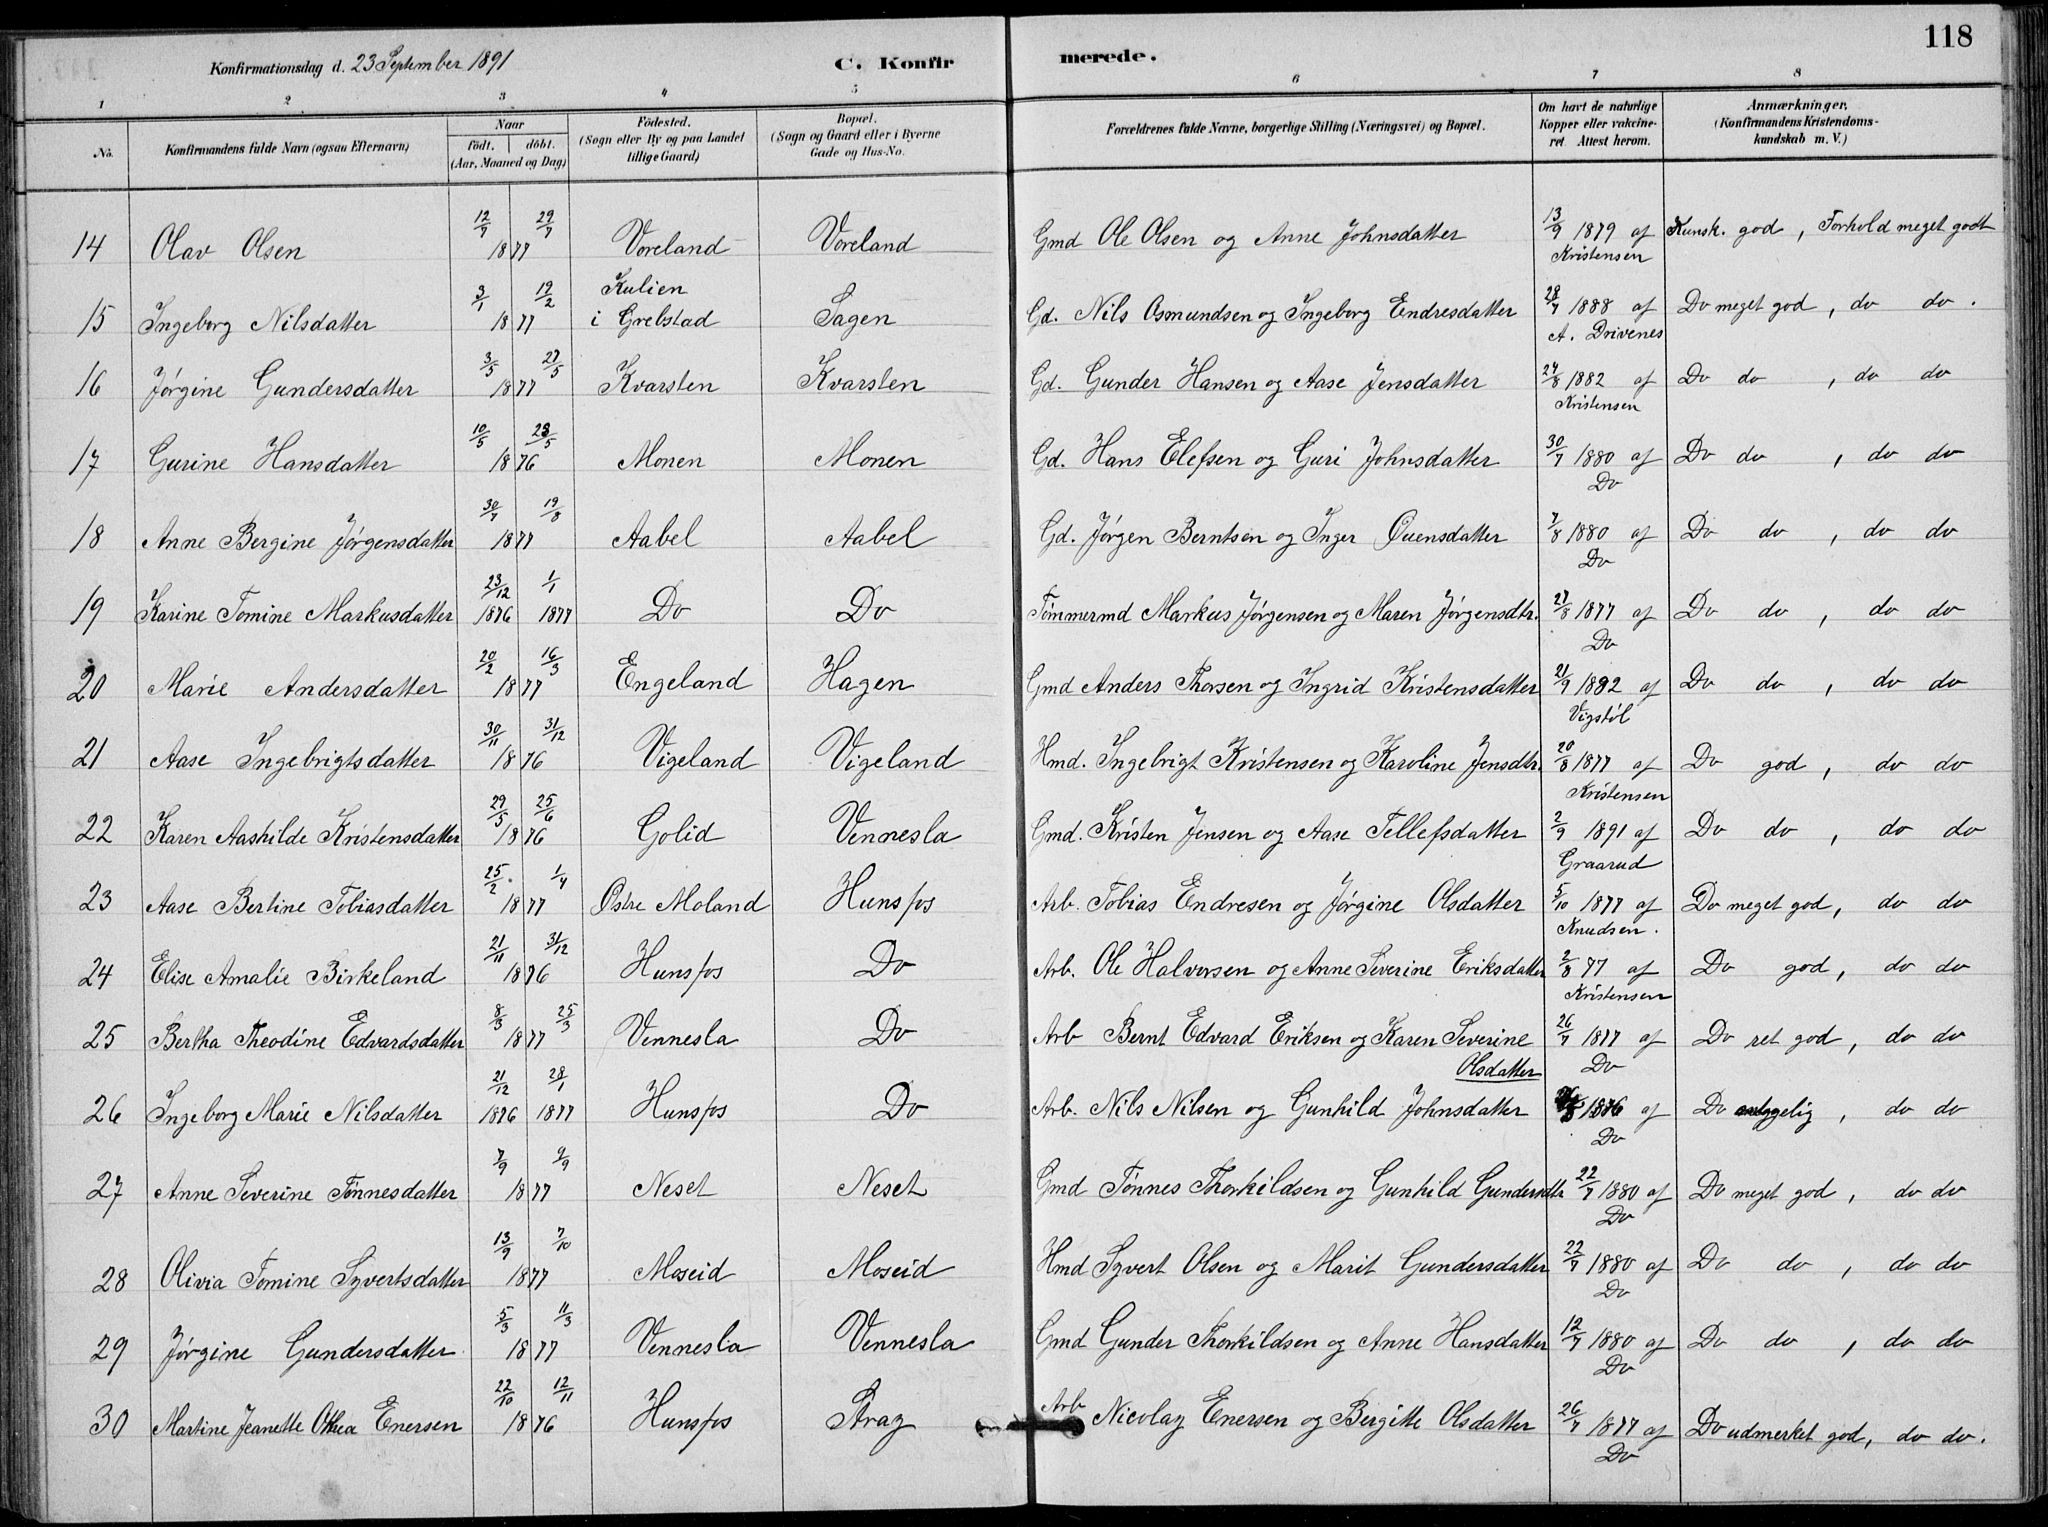 118
Konfirmationsdag d. 23 September 1891 C. Konfirmerede.
1 2 3 4 5 6 7 8
No. Konfirmandens fulde Navn (ogsaa Efternavn) Naar födt. döbt. (Aar, Maaned og Dag) Födested. (Sogn eller By og paa Landet tillige Gaard) Bopæl. (Sogn og Gaard eller i Byerne Gade og Hus-No. Forældrenes fulde Navne, borgerlige Stilling (Næringsvei) og Bopæl. Om havt de naturlige Kopper eller vakcineret. Attest herom. Anmærkninger. (Konfirmandens Kristendomskundskab m. V.)
14 Olav Olsen 12/7 29/7 1877 Voreland Voreland Gmd Ole Olsen og Anne Johnsdatter 13/9 1879 af Kristensen Kunsk. god, Forhold meget godt
15 Ingeborg Nilsdatter 3/1 19/2 1877 Kulien i Grebstad Sagen Gd. Nils Osmundsen og Ingeborg Endresdatter 28/7 1888 af A. Drivenes Do meget god, do do.
16 Jørgine Gundersdatter 3/5 27/5 1877 Kvarsten Kvarsten Gd. Gunder Hansen og Aase Jensdatter 24/8 1882 af Kristensen Do do, do do
17 Gurine Hansdatter 10/5 28/5 1876 Monen Monen Gd. Hans Elefsen og Guri Johnsdatter 30/7 1880 af Do Do do, do do
18 Anne Bergine Jørgensdatter 30/7 19/8 1877 Aabel Aabel Gd. Jørgen Berntsen og Inger Ouensdatter 7/8 1880 af Do Do do, do do
19 Karine Tomine Markusdatter 23/12 1876 1/1 1877 Do Do Tømmermd Markus Jørgensen og Maren Jørgensdtr. 27/8 1877 af Do Do do, do do
20 Marie Andersdatter 20/2 16/3 1877 Engeland Hagen Gmd Anders Thorsen og Ingrid Kristensdatter 21/9 1882 af Vigstøl Do do, do do
21 Aase Ingebrigtsdatter 30/11 31/12 1876 Vigeland Vigeland Hmd. Ingebrigt Kristensen og Karoline Jensdtr. 20/8 1877 af Kristensen Do god, do do
22 Karen Aashilde Kristensdatter 29/5 25/6 1876 Golid Vennesla Gmd. Kristen Jensen og Aase Tellefsdatter 2/9 1891 af Graarud Do do, do do
23 Aase Bertine Tobiasdatter 25/2 1/4 1877 Østre Moland Hunsfos Arb. Tobias Endresen og Jørgine Olsdatter 5/10 1877 af Knudsen. Do meget god, do do
24 Elise Amalie Birkeland 21/11 31/12 1876 Hunsfos Do Arb. Ole Halvorsen og Anne Severine Eriksdatter 2/8 77 af Kristensen Do god, do do
25 Bertha Theodine Edvardsdatter 8/3 25/3 1877 Vennesla Do Arb Bernt Edvard Eriksen og Karen Severine Olsdatter 26/7 1877 af Do Do ret god, do do
26 Ingeborg Marie Nilsdatter 21/12 1876 28/1 1877 Hunsfos Do Arb. Nils Nilsen og Gunhild Johnsdatter 1876 af Do Do do do
27 Anne Severine Tønnesdatter 7/9 9/9 1877 Neset Neset Gmd Tønnes Thorkildsen og Gunhild Gundersdtr 22/7 1880 af Do Do meget god, do do
28 Olivia Tomine Syvertsdatter 13/9 7/10 1877 Moseid Moseid Hmd Syvert Olsen og Marit Gundersdatter 22/7 1880 af Do Do do, do do
29 Jørgine Gundersdatter 5/3 11/3 1877 Vennesla Vennesla Gmd Gunder Thorkildsen og Anne Hansdatter 12/7 1880 af Do Do do, do do
30 Martine Jeanette Othea Enersen 22/10 12/11 1876 Hunsfos Straz Arb Nicolaz Enersen og Bergitte Olsdatter 26/7 1877 af Do Do udmerket god, do do.